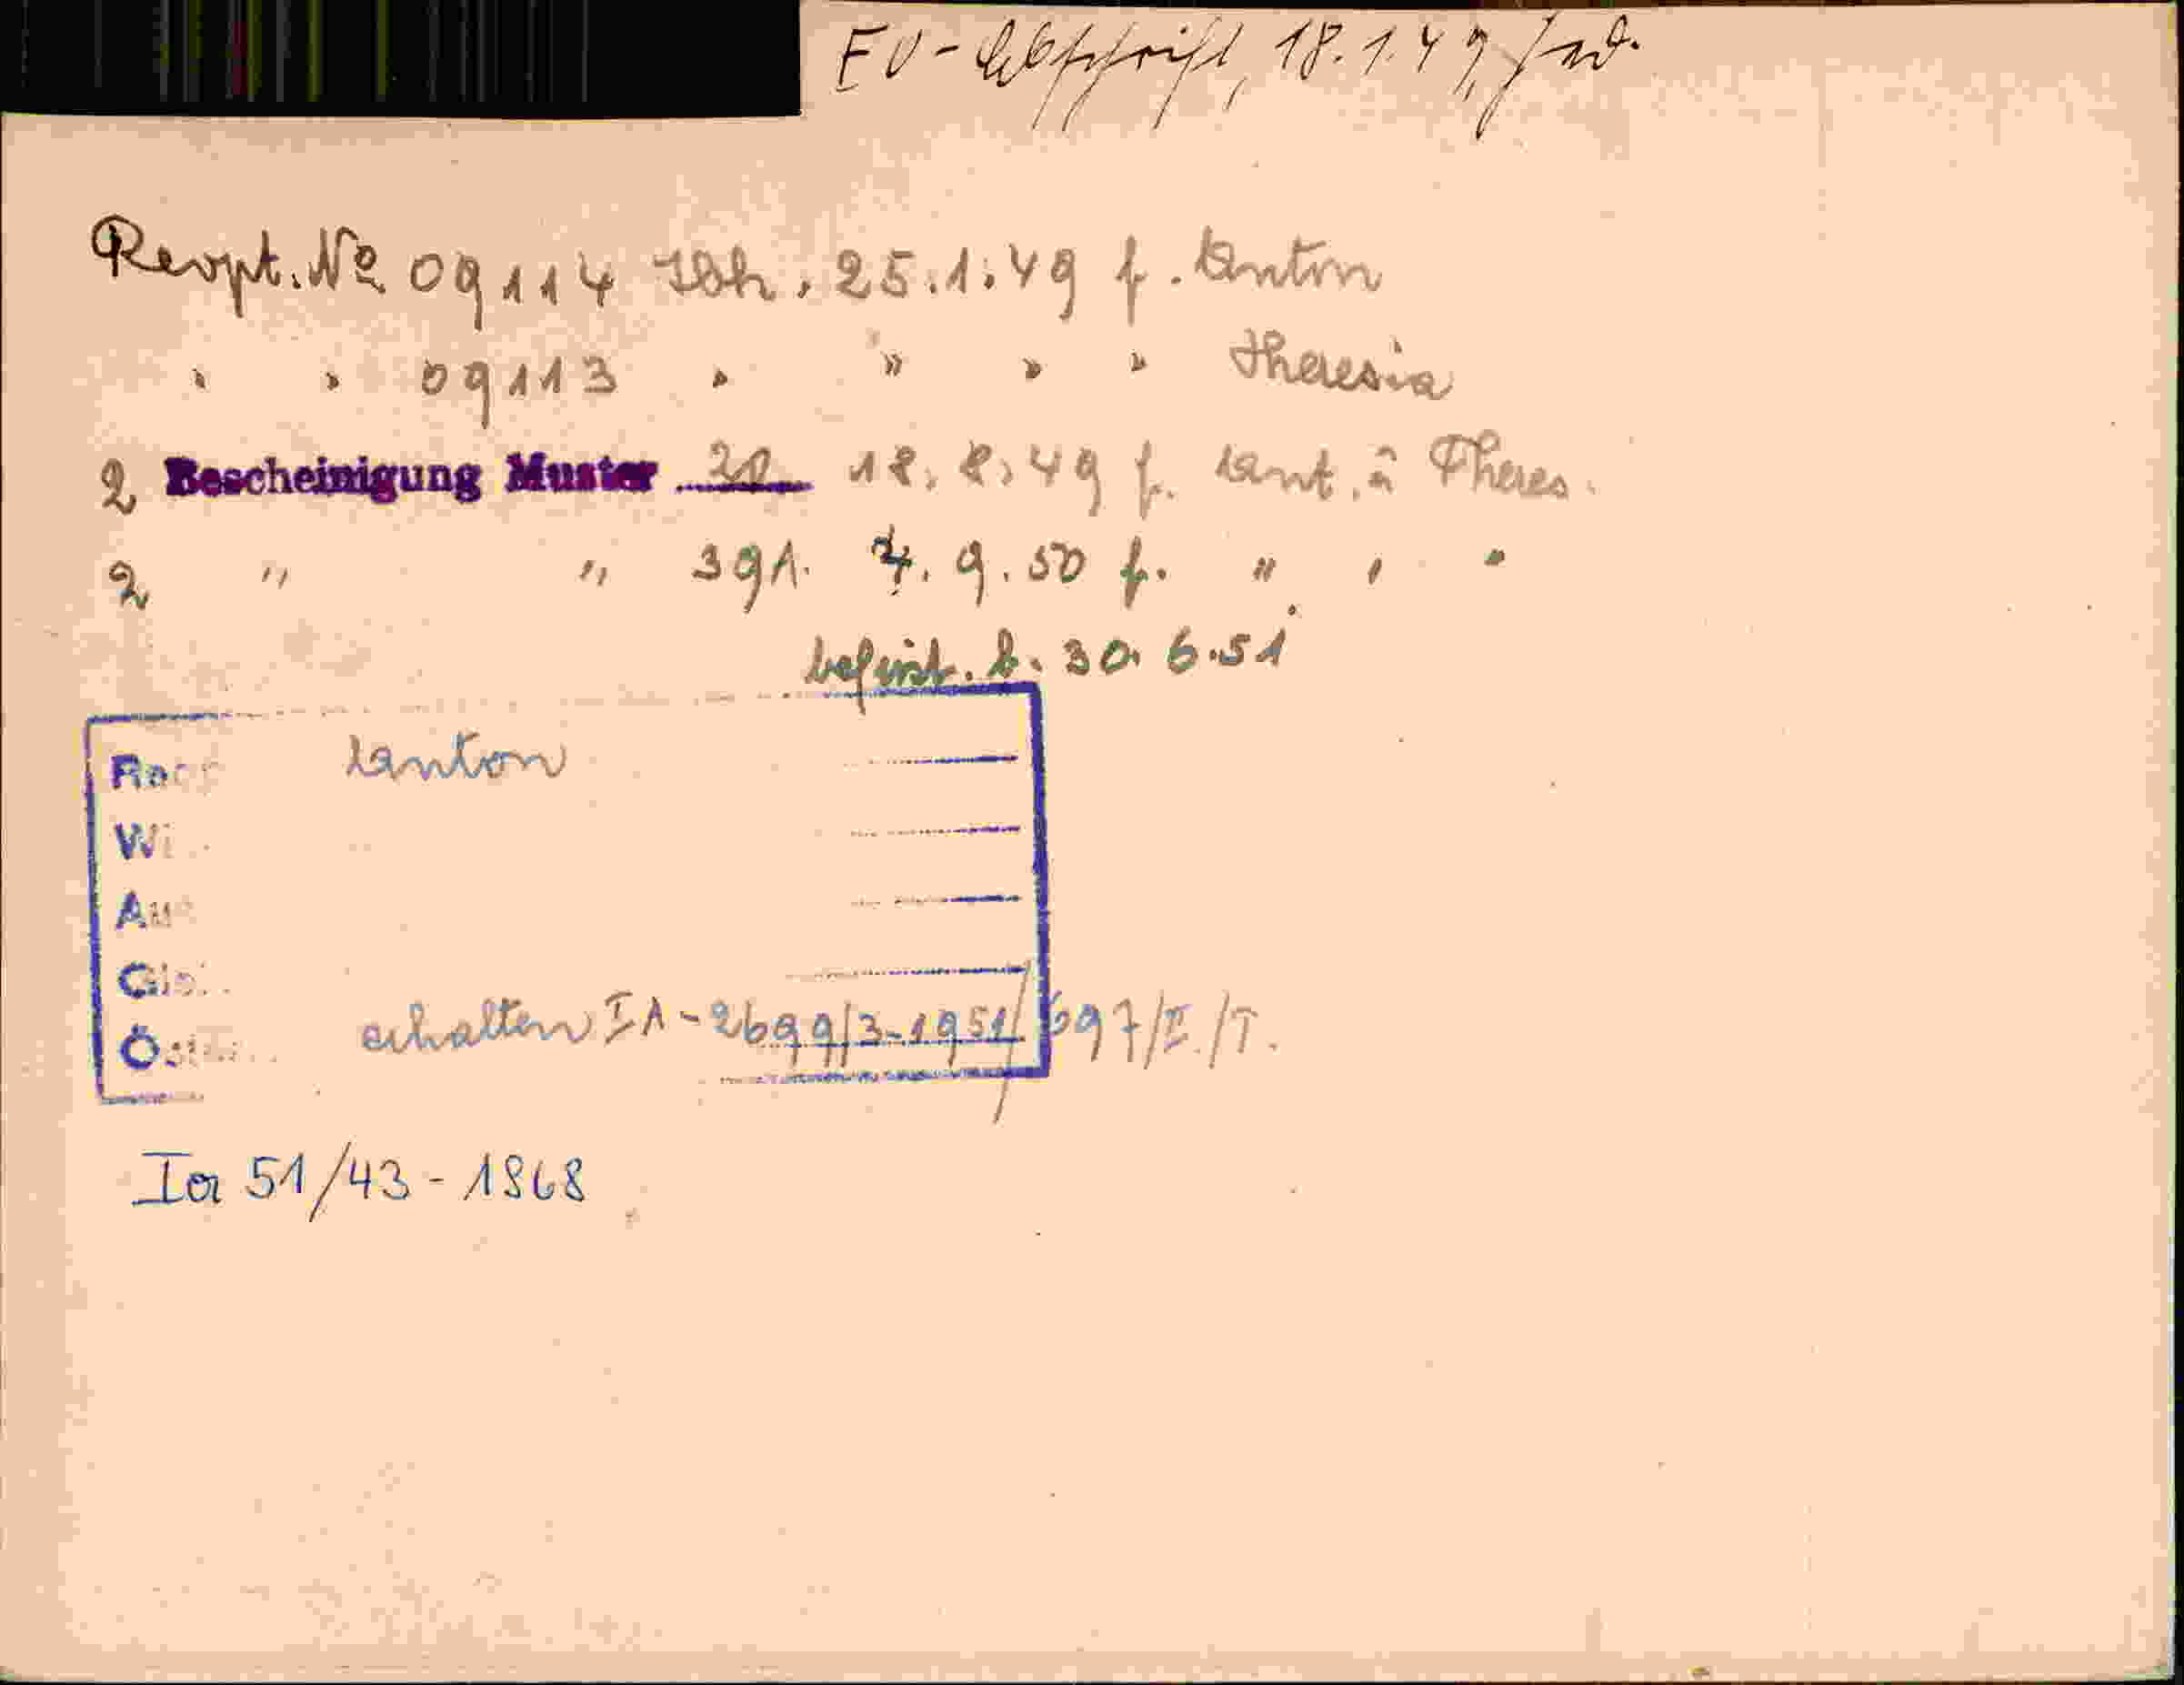 EU-Abschrift, 18.1.49,
Revpt. No 09114 Ibk. 25.1.49 f. Anton
" " 09113 " " " " Theresia
2 Bescheinigung Muster 20 18.8.49 f. Ant. u Theres.
2 " " 391. 7.9.50 f. " " "
befrist. b. 30.6.51
Anton
erhalten IA-2699/3-1951/697/I./T.
Ia 51/43-1868